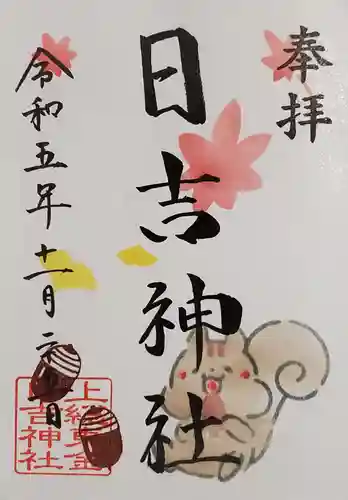 奉拝
日吉神社
令和五年十一月二十日
上総東金
日吉神社